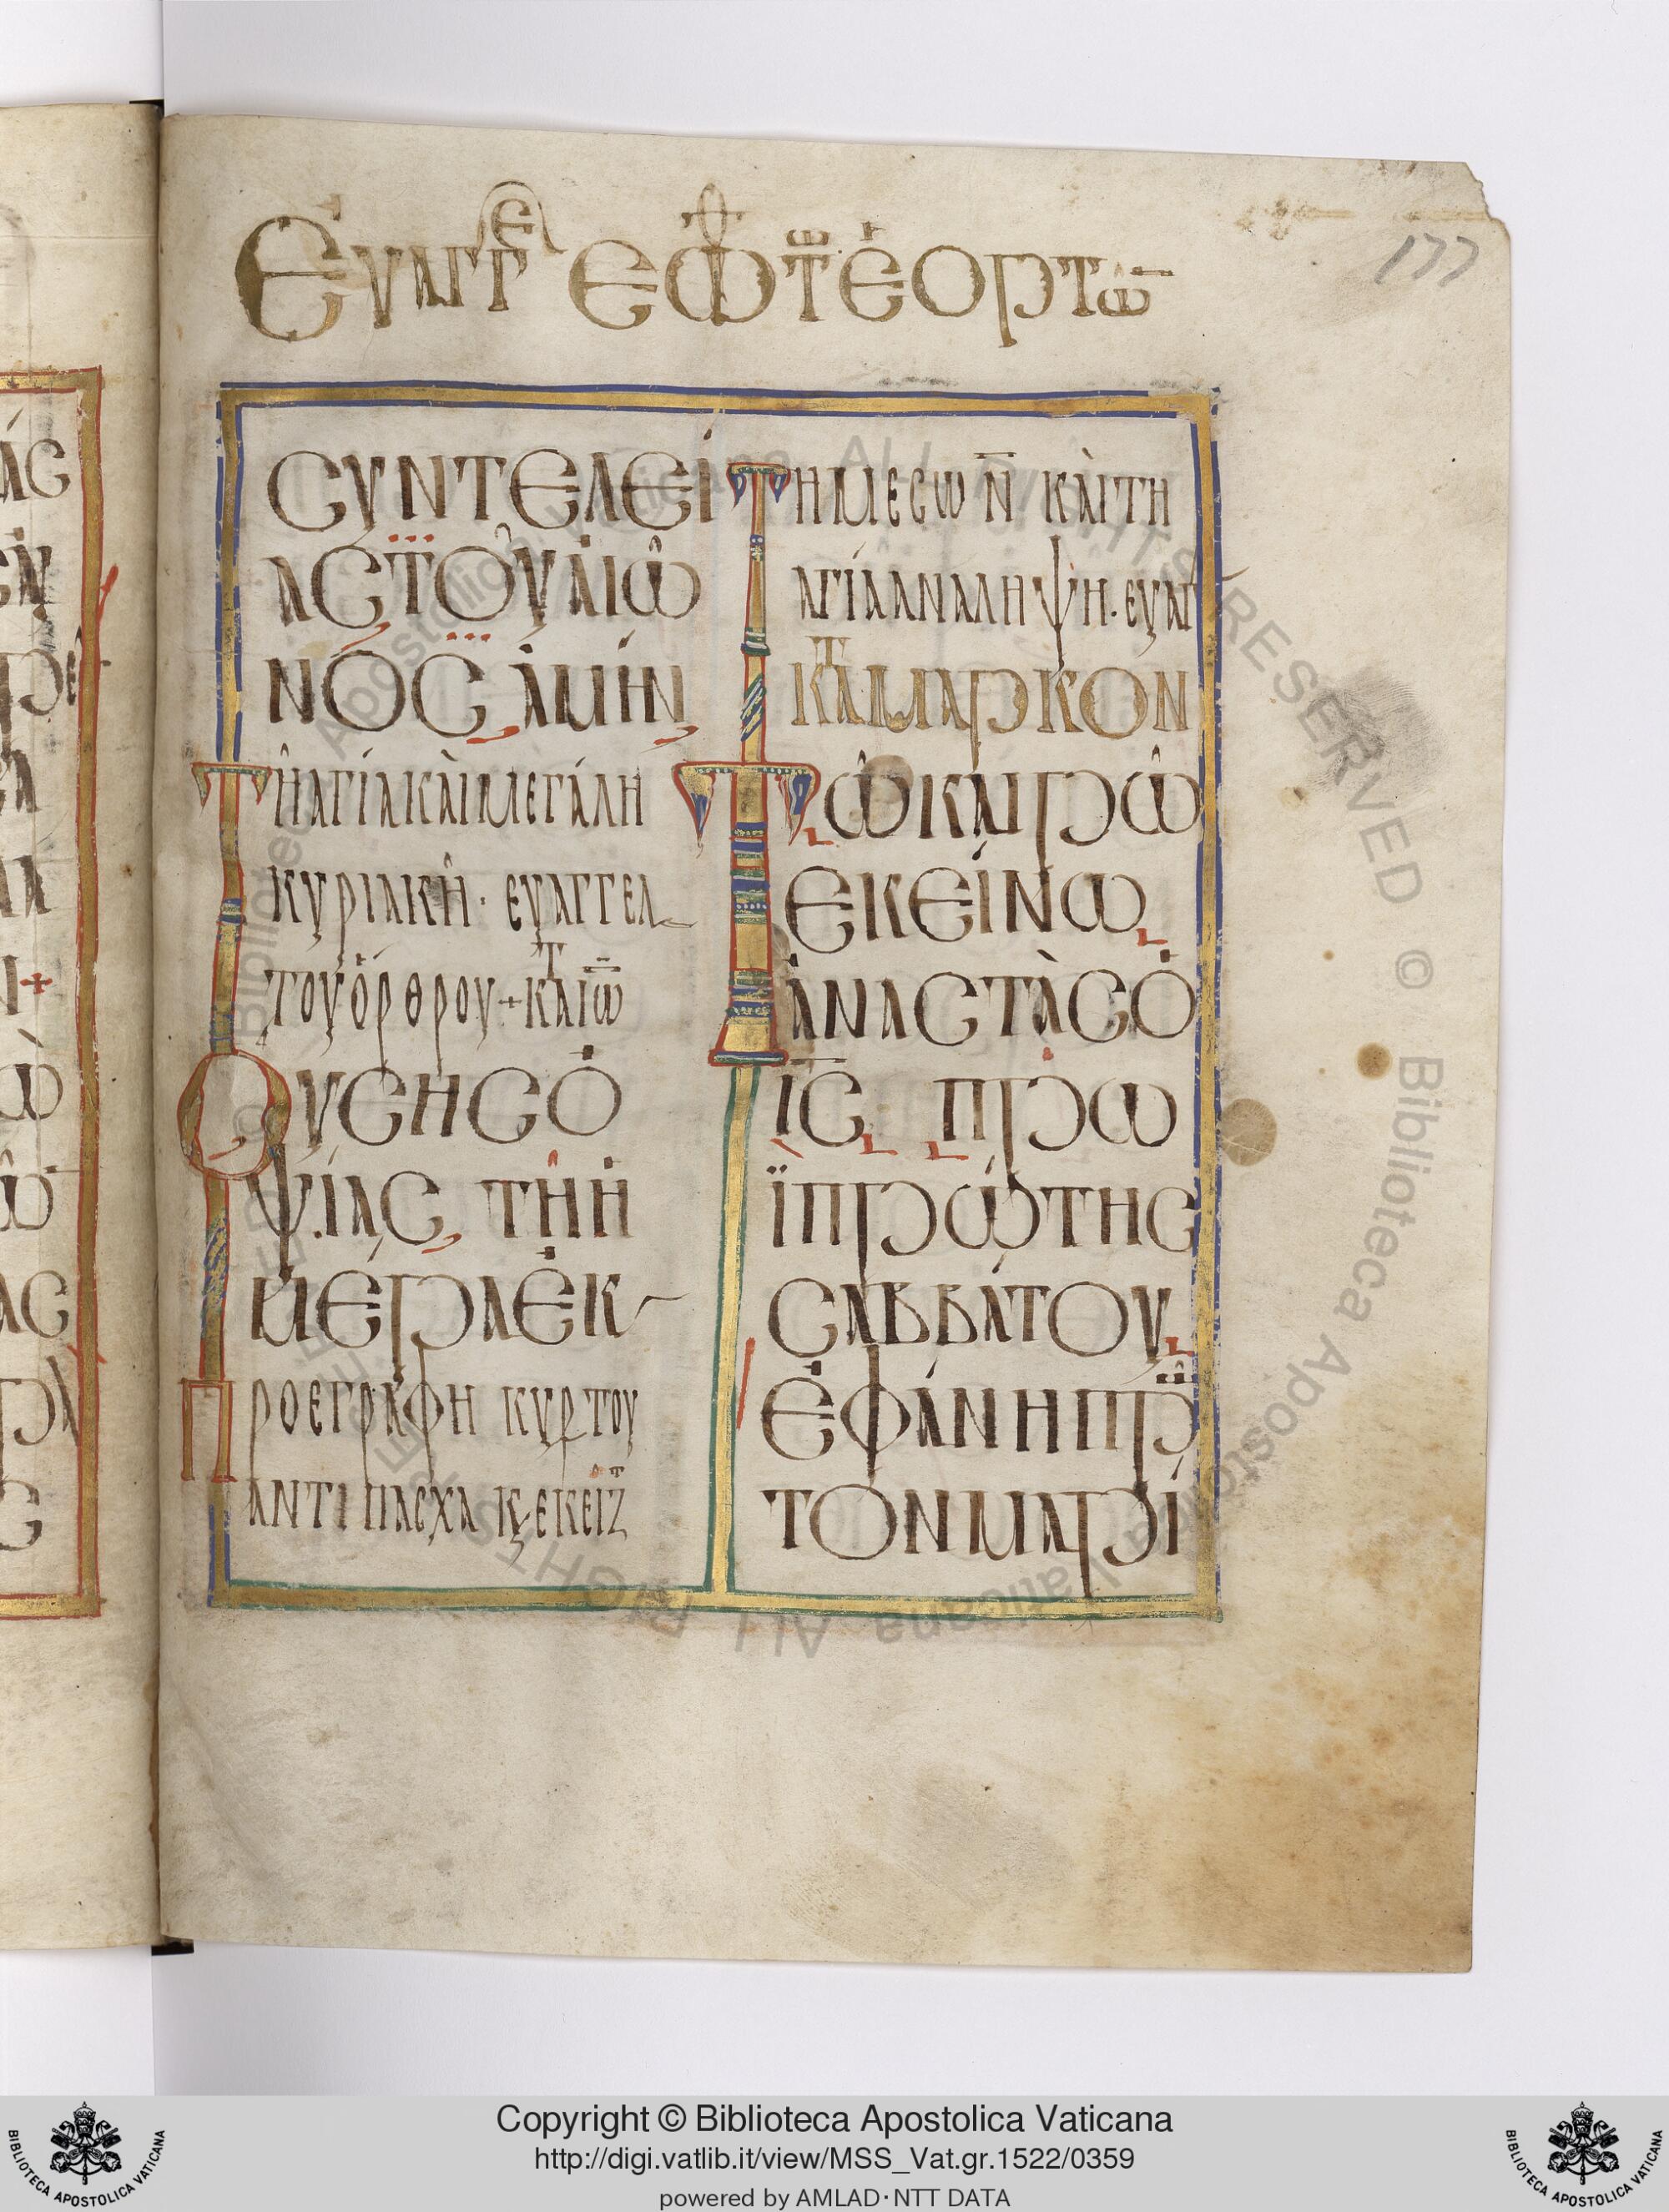 Εὐαγγε ἐφ τ ἑορτῶ
177
ϹΥΝΤΕΛΕΊ
ΑϹ ΤΟΥ ΑἸΩ͂
ΝΟϹ ἈΜΉΝ
ΤΗ͂ ἉΓΊΑ ΚΑῚ ΜΕΓΆΛΗ
ΚΥΡΙΑΚΗ͂· ΕΥΑΓΓΕΛ
ΤΟΥ ὌΡΘΡΟΥ + ΚΤ ΑΙΩ
ΟΥϹΗϹ Ὀ
ΨΊΑϹ, ΤΗ͂ Ἡ
ΜΕΡΑ ἘΚ
ΠΡΟΕΓΡΆΦΗ ΚΥΡ ΤΟΥ
ΑΝΤΙΠΑϹΧΑ Κ, ΕΚΕΙ ΖΤ
ΤΗ ΜΕϹΩ Ν̄ ΚΑῚ ΤΗ
ἉΓΊΑ ΑΝΑΛΗΨΗ· ΕΥΑΓ
ΚΤΑ ΜΑΡΚΟΝ
ΤΩ͂ ΚΑΙΡΩ͂
ΕΚΕΊΝΩ
ἈΝΑϹΤᾺϹ Ὁ
ΙϹ̄ ΠΡΩ
Ϊ ΠΡΏΤΗϹ
ϹΑΒΒΆΤΟΥ
ἘΦΆΝΗ ΠΡΩ͂
ΤΟΝ ΜΑΡΊ
Copyright © Biblioteca Apostolica Vaticana
http://digi.vatlib.it/view/MSS_Vat.gr.1522/0359
powered by AMLAD·NTT DATA
BIBLIOTECA APOSTOLICA VATICANA
BIBLIOTECA APOSTOLICA VATICANA